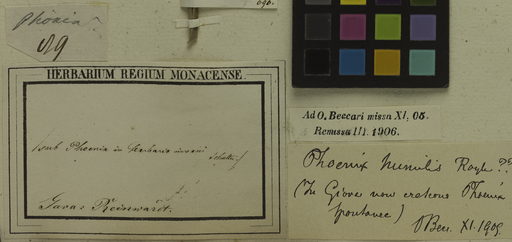 Phönix?
89
696.
HERBARIUM REGIUM MONACENSE
(sub Phoenix in Herbario
Java: Reinwardt.
Ad O. Beccari missa XI, 05.
Remissa III. 1906.
Phoenix humilis Royle ??
(In Giava non crescono Phoenix
spontanee)
OBecc. XI. 1905.